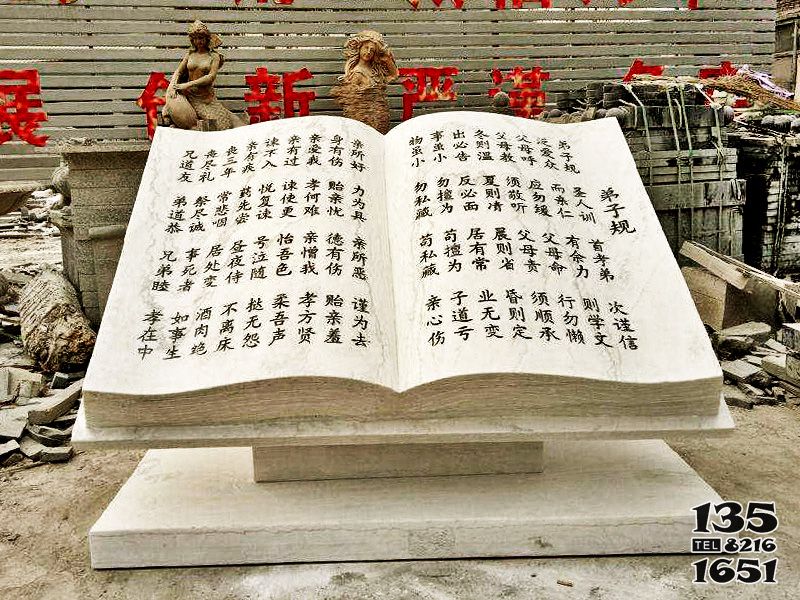 展 创新 严谨
弟子规
弟子规 圣人训 首孝弟 次谨信
泛爱众 而亲仁 有余力 则学文
父母呼 应勿缓 父母命 行勿懒
父母教 须敬听 父母责 须顺承
冬则温 夏则凊 晨则省 昏则定
出必告 反必面 居有常 业无变
事虽小 勿擅为 苟擅为 子道亏
物虽小 勿私藏 苟私藏 亲心伤
亲所好 力为具 亲所恶 谨为去
身有伤 贻亲忧 德有伤 贻亲羞
亲爱我 孝何难 亲憎我 孝方贤
亲有过 谏使更 怡吾色 柔吾声
谏不入 悦复谏 号泣随 挞无怨
亲有疾 药先尝 昼夜侍 不离床
丧三年 常悲咽 居处变 酒肉绝
丧尽礼 祭尽诚 事死者 如事生
兄道友 弟道恭 兄弟睦 孝在中
135
TEL 8216
1651